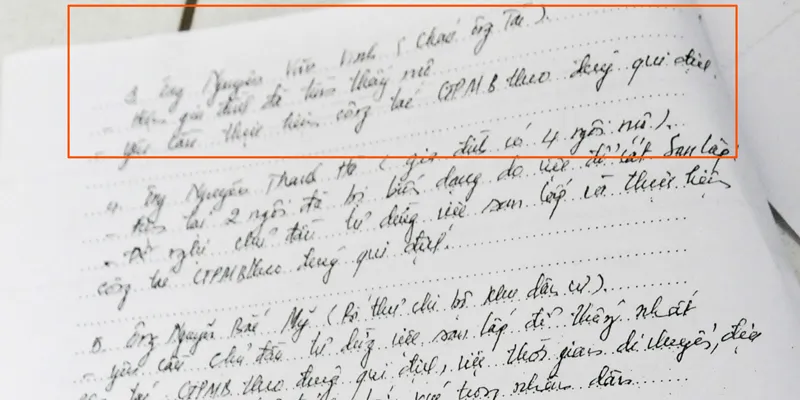 3. Ông Nguyễn Văn Vinh (Cháu ông Tài).
- Hiện gia đình đã tìm thấy mộ
- yêu cầu thực hiện công tác GPMB theo đúng qui định.
4. Ông Nguyễn Thanh Hà (gia đình có 4 ngôi mộ).
- Hiện tại 2 ngôi đã bị biến dạng do việc đổ cát san lấp.
- Đề nghị chủ đầu tư dừng việc san lấp và thực hiện
công tác GPMB theo đúng qui định.
5. Ông Nguyễn Bắc Mỹ (Bí thư chi bộ khu dân cư).
- yêu cầu chủ đầu tư dừng việc san lấp để thống nhất
công tác GPMB theo đúng qui định, việc thời gian di chuyển, địa
trong nhân dân